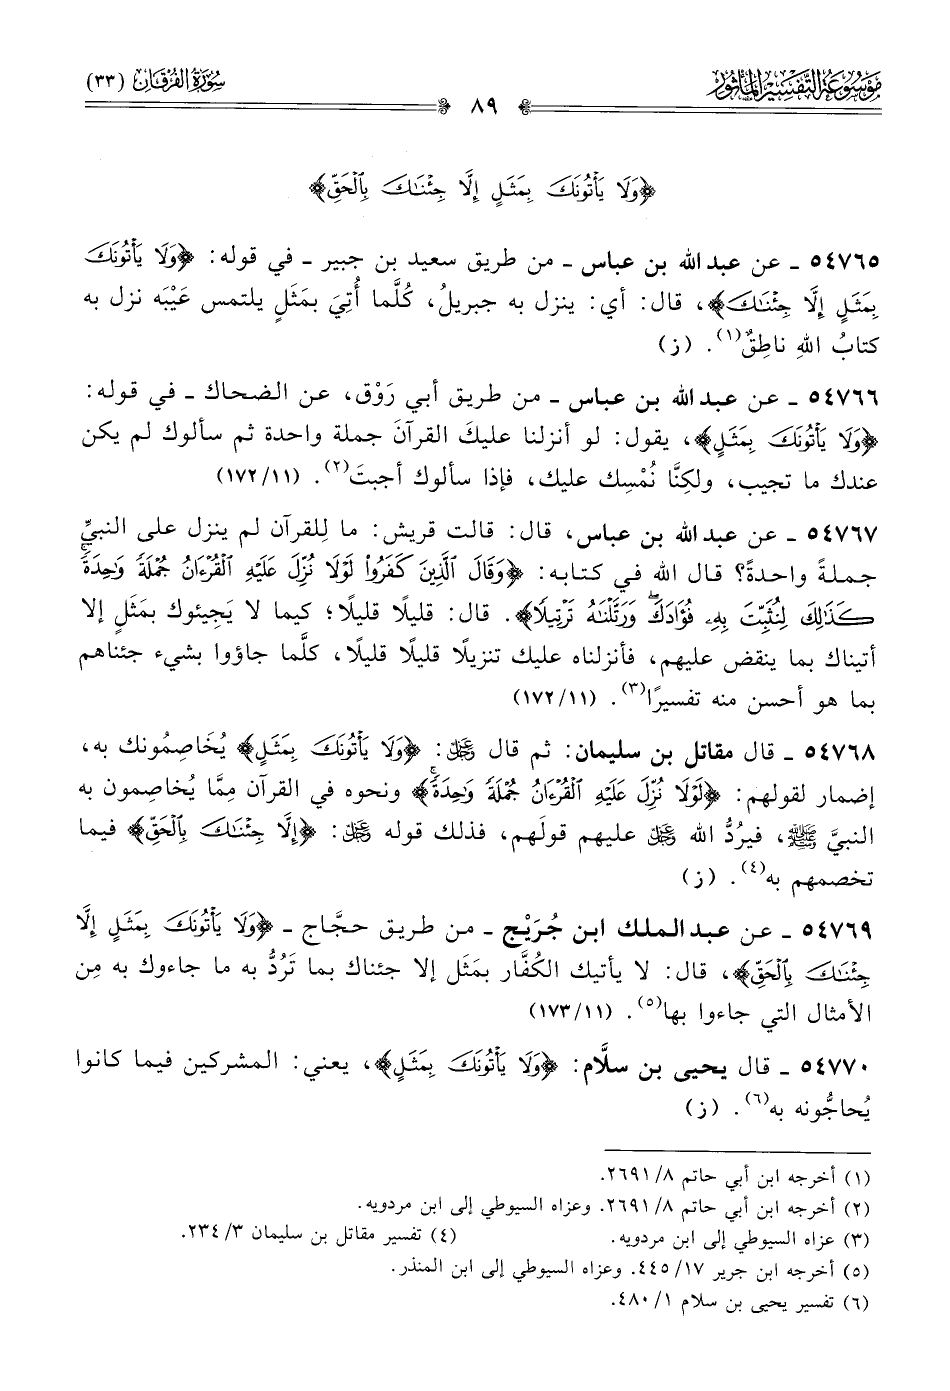 مَوْسُوعَةُ التَّفْسِيرِ المَأْثُورِ
سُورَةُ الفُرْقَان (٣٣)
٨٩
﴿وَلَا يَأْتُونَكَ بِمَثَلٍ إِلَّا جِئْنَٰكَ بِٱلْحَقِّ﴾
٥٤٧٦٥ ـ عن عبد الله بن عباس ـ من طريق سعيد بن جبير ـ في قوله: ﴿وَلَا يَأْتُونَكَ
بِمَثَلٍ إِلَّا جِئْنَٰكَ﴾، قال: أي: ينزل به جبريلُ، كُلَّما أُتِيَ بمَثَلٍ يلتمس عَيْبَه نزل به
كتابُ اللهِ ناطِقٌ(١). (ز)
٥٤٧٦٦ ـ عن عبد الله بن عباس ـ من طريق أبي رَوْق، عن الضحاك ـ في قوله:
﴿وَلَا يَأْتُونَكَ بِمَثَلٍ﴾، يقول: لو أنزلنا عليكَ القرآنَ جملة واحدة ثم سألوك لم يكن
عندك ما تجيب، ولكِنَّا نُمْسِك عليك، فإذا سألوك أجبتَ(٢). (١١/ ١٧٢)
٥٤٧٦٧ ـ عن عبد الله بن عباس، قال: قالت قريش: ما لِلقرآن لم ينزل على النبيِّ
جملةً واحدةً؟ قال الله في كتابه: ﴿وَقَالَ ٱلَّذِينَ كَفَرُواْ لَوْلَا نُزِّلَ عَلَيْهِ ٱلْقُرْءَانُ جُمْلَةً وَٰحِدَةً
كَذَٰلِكَ لِنُثَبِّتَ بِهِۦ فُؤَادَكَۖ وَرَتَّلْنَٰهُ تَرْتِيلًا﴾. قال: قليلًا قليلًا؛ كيما لا يَجيئوك بمَثَلٍ إلا
أتيناك بما ينقض عليهم، فأنزلناه عليك تنزيلًا قليلًا قليلًا، كلَّما جاؤوا بشيء جئناهم
بما هو أحسن منه تفسيرًا(٣). (١١/ ١٧٢)
٥٤٧٦٨ ـ قال مقاتل بن سليمان: ثم قال ﷻ: ﴿وَلَا يَأْتُونَكَ بِمَثَلٍ﴾ يُخَاصِمُونك به،
إضمار لقولهم: ﴿لَوْلَا نُزِّلَ عَلَيْهِ ٱلْقُرْءَانُ جُمْلَةً وَٰحِدَةً﴾ ونحوه في القرآن مِمَّا يُخاصمون به
النبيَّ ﷺ، فيرُدُّ الله ﷻ عليهم قولَهم، فذلك قوله ﷻ: ﴿إِلَّا جِئْنَٰكَ بِٱلْحَقِّ﴾ فيما
تخصمهم به(٤). (ز)
٥٤٧٦٩ ـ عن عبد الملك ابن جُرَيْج ـ من طريق حجَّاج ـ ﴿وَلَا يَأْتُونَكَ بِمَثَلٍ إِلَّا
جِئْنَٰكَ بِٱلْحَقِّ﴾، قال: لا يأتيك الكُفَّار بمَثَل إلا جئناك بما تَرُدُّ به ما جاءوك به مِن
الأمثال التي جاءوا بها(٥). (١١/ ١٧٣)
٥٤٧٧٠ ـ قال يحيى بن سلَّام: ﴿وَلَا يَأْتُونَكَ بِمَثَلٍ﴾، يعني: المشركين فيما كانوا
يُحاجُّونه به(٦). (ز)
(١) أخرجه ابن أبي حاتم ٨/ ٢٦٩١.
(٢) أخرجه ابن أبي حاتم ٨/ ٢٦٩١. وعزاه السيوطي إلى ابن مردويه.
(٣) عزاه السيوطي إلى ابن مردويه. (٤) تفسير مقاتل بن سليمان ٣/ ٢٣٤.
(٥) أخرجه ابن جرير ١٧/ ٤٤٥. وعزاه السيوطي إلى ابن المنذر.
(٦) تفسير يحيى بن سلام ١/ ٤٨٠.